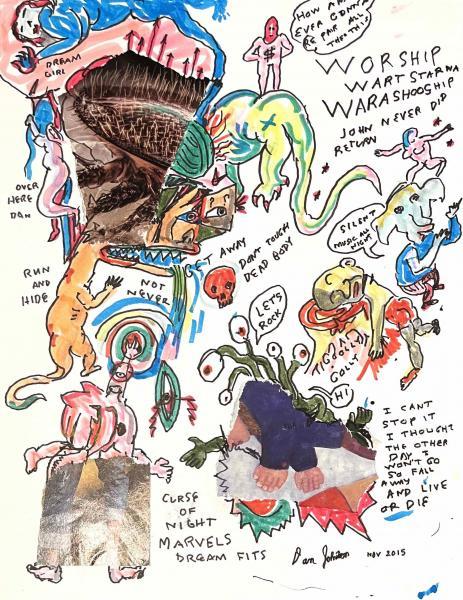 HOW AM I
EVER GONNA
BE PAIR ALL
THEN THIS
$
DREAM
GIRL
WORSHIP
WART STARWA
WARASHOOSHIP
JOHN NEVER DID
RETURN
OVER
HERE
DAN
SILENT
MUSIC ALL
NIGHT
GET AWAY
DON'T TOUCH
DEAD BODY
RUN
AND
HIDE
NOT
NEVER
LET'S
ROCK
GOLLY
HI
I CANT
STOP IT
I THOUGHT
THE OTHER
DAY I
WON'T GO
SO FALL
AWAY
AND LIVE
OR DIE
CURSE
OF
NIGHT
MARVELS
DREAM FITS
Dan Johnston
NOV 2015